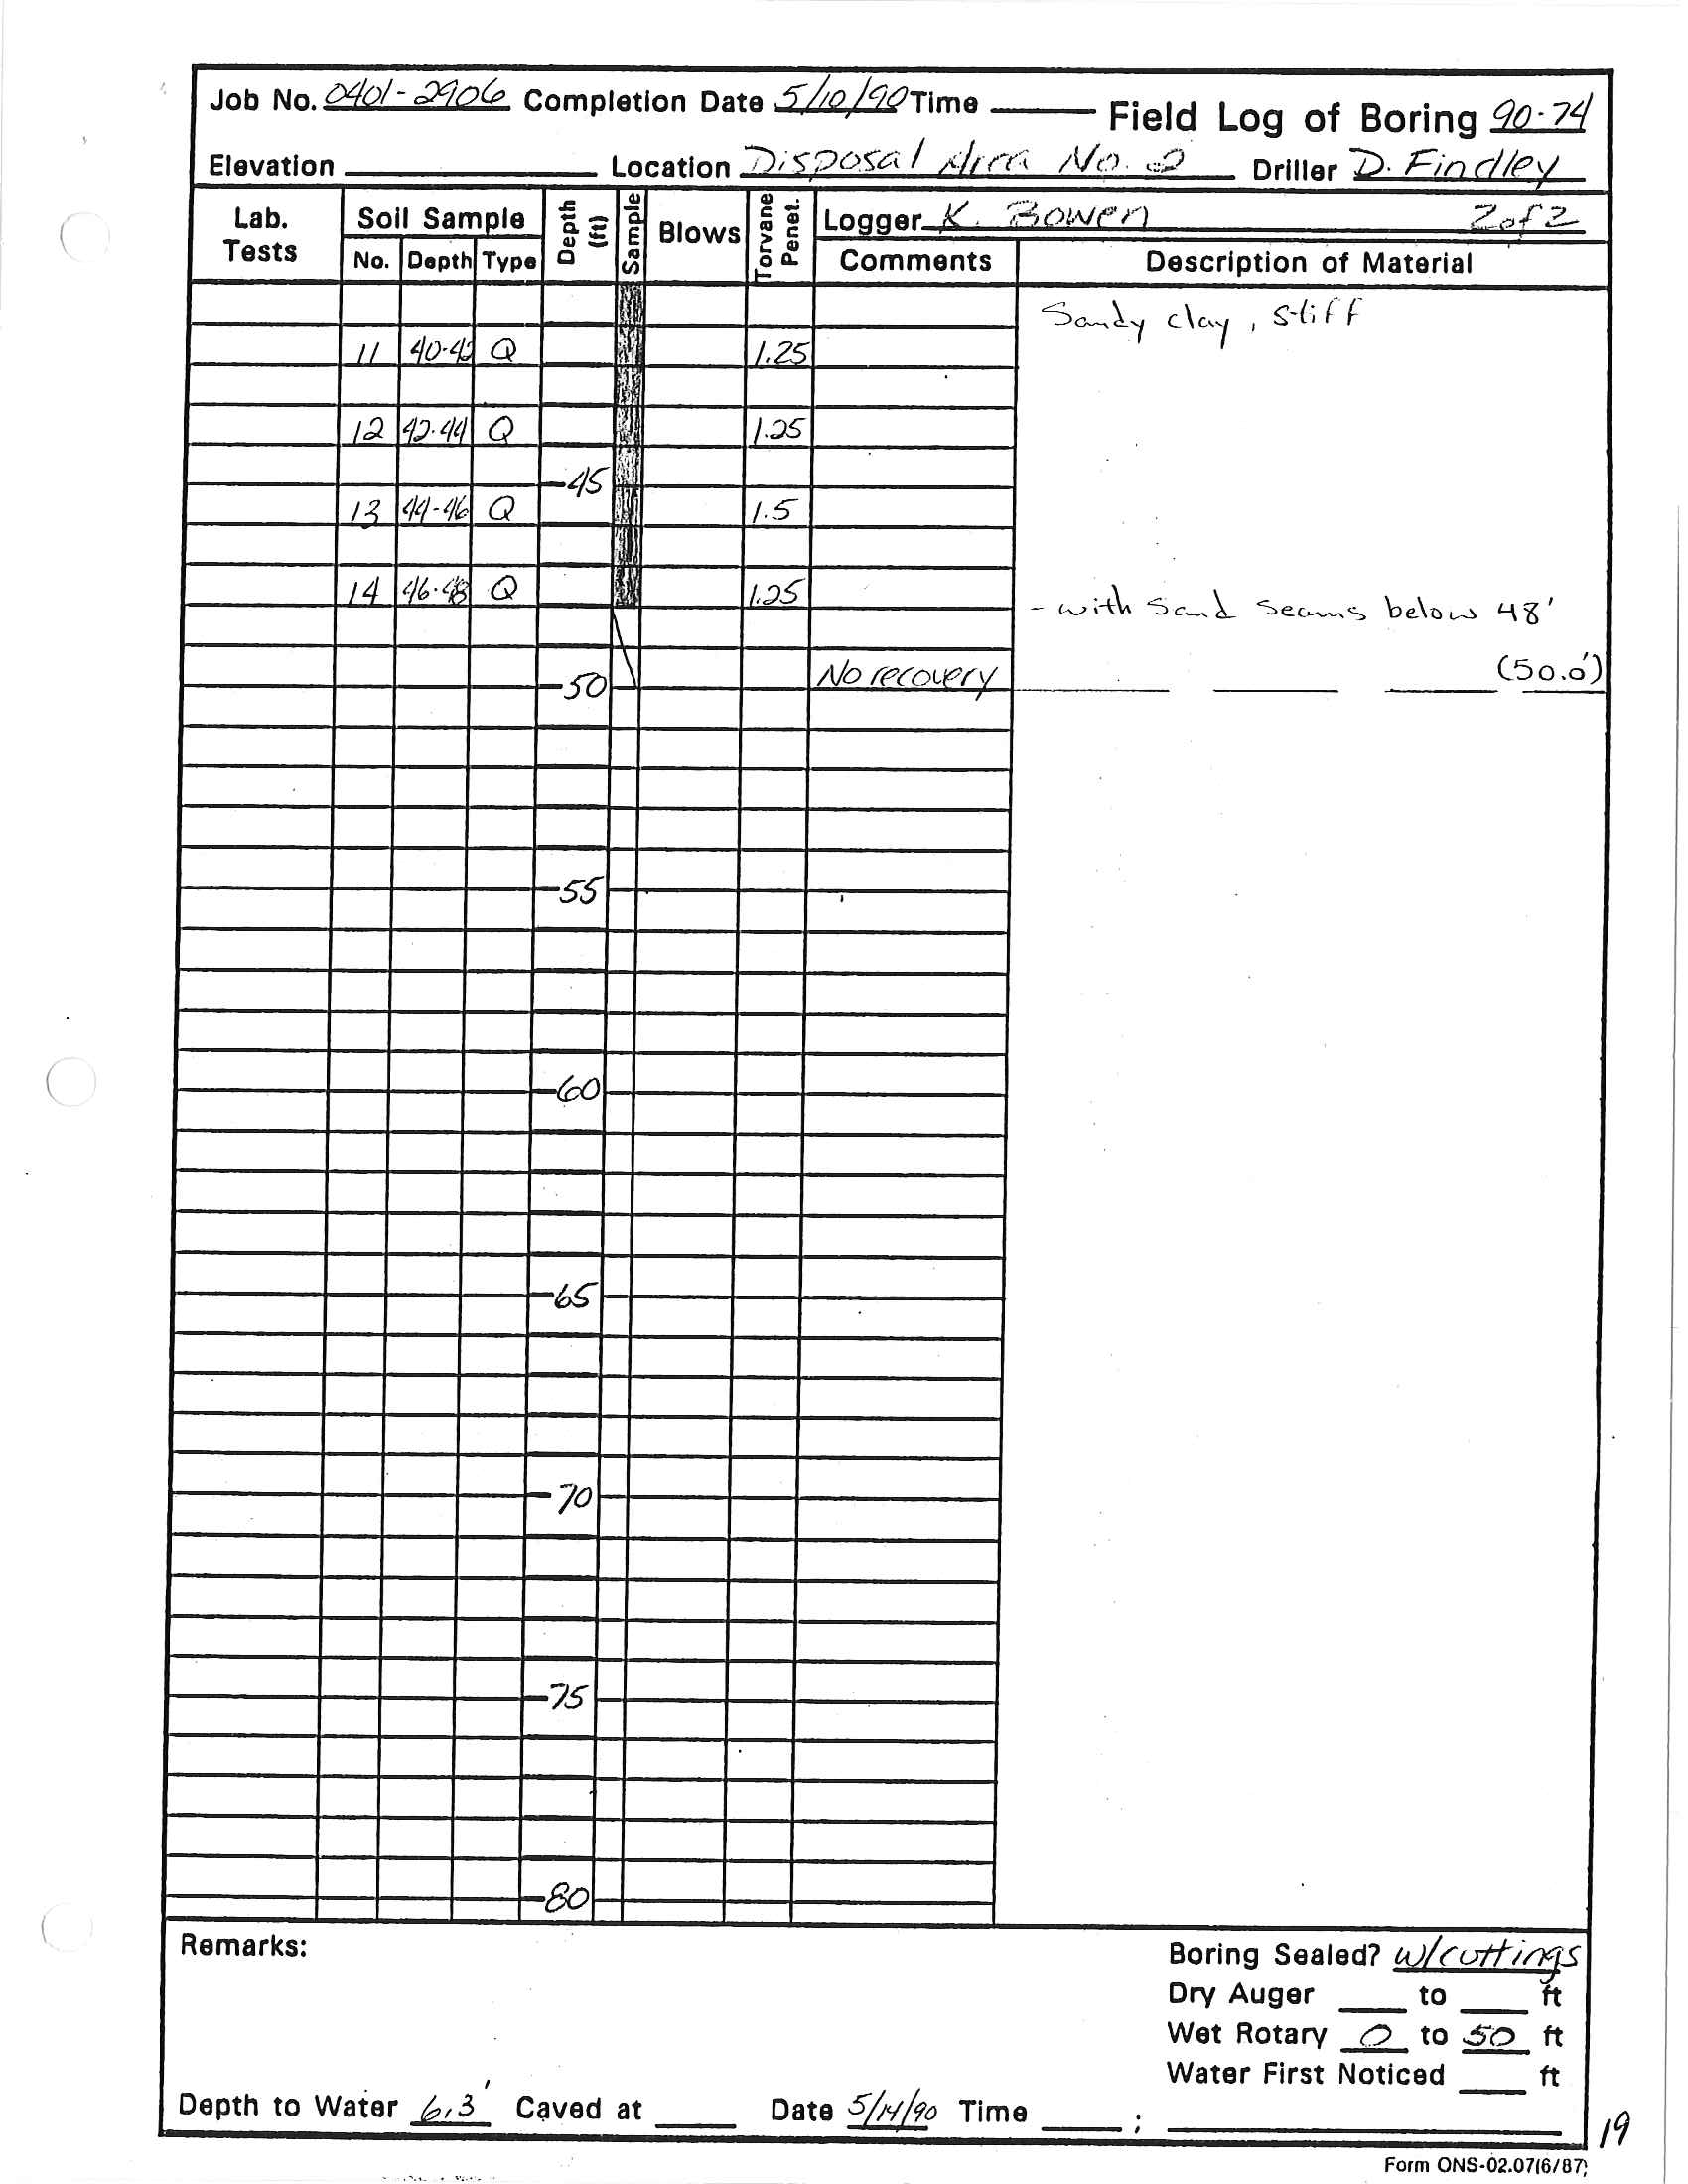 Job No. 0401-2906 Completion Date 5/10/90 Time Field Log of Boring 90-74
Elevation Location Disposal Area No. 2 Driller D. Findley
Lab. Tests Soil Sample Depth (ft) Sample Blows Torvane Penet. Logger K. Bowen 2 of 2
No. Depth Type Comments Description of Material
Sandy clay, stiff
11 40-42 Q 1.25
12 42-44 Q 1.25
45
13 44-46 Q 1.5
14 46-48 Q 1.25
- with sand seams below 48'
50 No recovery (50.0')
55
60
65
70
75
80
Remarks:
Boring Sealed? w/cuttings
Dry Auger to ft
Wet Rotary 0 to 50 ft
Water First Noticed ft
Depth to Water 6.3' Caved at Date 5/14/90 Time ;
19
Form ONS-02.07(6/87)